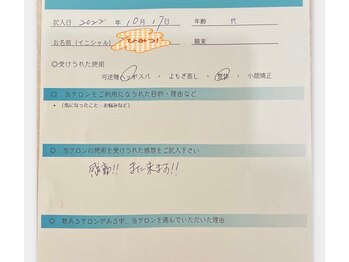 記入日 2022 年 10 月 17 日 年齢 代
お名前(イニシャル) ひみつ! 職業
◎受けられた施術
・よもぎ蒸し・整体・小顔矯正
◎ 当サロンをご利用になられた目的・理由など
・(気になったこと・お悩みなど)
◎ 当サロンの施術を受けられた感想をご記入下さい
感動!! また来ます!!
◎ 数あるサロンがある中、当サロンを選んでいただいた理由